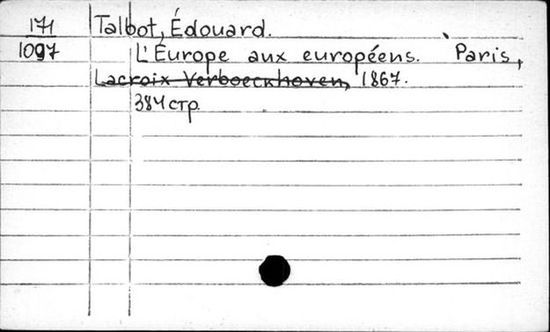 171 Talbot, Édouard.
1097 L'Europe aux européens. Paris,
Lacroix Verboeckhoven, 1867.
384 стр.